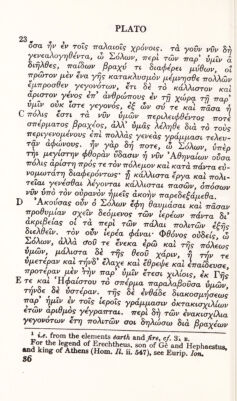 PLATO
23
ὅσα ἦν ἐν τοῖς παλαιοῖς χρόνοις. τὰ γοῦν νῦν δὴ
γενεαλογηθέντα, ὦ Σόλων, περὶ τῶν παρ’ ὑμῖν ἃ
διῆλθες, παίδων βραχύ τι διαφέρει μύθων, οἳ
πρῶτον μὲν ἕνα γῆς κατακλυσμὸν μέμνησθε πολλῶν
ἔμπροσθεν γεγονότων, ἔτι δὲ τὸ κάλλιστον καὶ
ἄριστον γένος ἐπ’ ἀνθρώπους ἐν τῇ χώρᾳ τῇ παρ’
ὑμῖν οὐκ ἴστε γεγονός, ἐξ ὧν σύ τε καὶ πᾶσα ἡ
C πόλις ἔστι τὰ νῦν ὑμῶν περιλειφθέντος ποτὲ
σπέρματος βραχέος, ἀλλ’ ὑμᾶς λέληθε διὰ τὸ τοὺς
περιγενομένους ἐπὶ πολλὰς γενεὰς γράμμασι τελευ-
τᾶν ἀφώνους. ἦν γὰρ δή ποτε, ὦ Σόλων, ὑπὲρ
τὴν μεγίστην φθορὰν ὕδασιν ἡ νῦν Ἀθηναίων οὖσα
πόλις ἀρίστη πρός τε τὸν πόλεμον καὶ κατὰ πάντα εὐ-
νομωτάτη διαφερόντως· ᾗ κάλλιστα ἔργα καὶ πολι-
τεῖαι γενέσθαι λέγονται κάλλισται πασῶν, ὁπόσων
νῦν ὑπὸ τὸν οὐρανὸν ἡμεῖς ἀκοὴν παρεδεξάμεθα.
D Ἀκούσας οὖν ὁ Σόλων ἔφη θαυμάσαι καὶ πᾶσαν
προθυμίαν σχεῖν δεόμενος τῶν ἱερέων πάντα δι’
ἀκριβείας οἱ τὰ περὶ τῶν πάλαι πολιτῶν ἑξῆς
διελθεῖν. τὸν οὖν ἱερέα φάναι· Φθόνος οὐδείς, ὦ
Σόλων, ἀλλὰ σοῦ τε ἕνεκα ἐρῶ καὶ τῆς πόλεως
ὑμῶν, μάλιστα δὲ τῆς θεοῦ χάριν, ἣ τήν τε
ὑμετέραν καὶ τήνδε ἔλαχε καὶ ἔθρεψε καὶ ἐπαίδευσε,
προτέραν μὲν τὴν παρ’ ὑμῖν ἔτεσι χιλίοις, ἐκ Γῆς
E τε καὶ ¹Ἡφαίστου τὸ σπέρμα παραλαβοῦσα ὑμῶν,
τήνδε δὲ ὑστέραν. τῆς δὲ ἐνθάδε διακοσμήσεως
παρ’ ἡμῖν ἐν τοῖς ἱεροῖς γράμμασιν ὀκτακισχιλίων
ἐτῶν ἀριθμὸς γέγραπται. περὶ δὴ τῶν ἐνακισχίλια
γεγονότων ἔτη πολιτῶν σοι δηλώσω διὰ βραχέων
¹ i.e. from the elements earth and fire, cf. 31 B.
For the legend of Erechtheus, son of Gê and Hephaestus,
and king of Athens (Hom. Il. ii. 547), see Eurip. Ion.
36